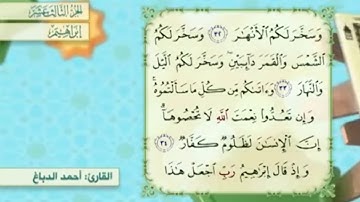 الجزء الثالث عشر
إبراهيم
وَسَخَّرَ لَكُمُ ٱلْأَنْهَٰرَ ٣٢ وَسَخَّرَ لَكُمُ
ٱلشَّمْسَ وَٱلْقَمَرَ دَآئِبَيْنِ وَسَخَّرَ لَكُمُ ٱلَّيْلَ
وَٱلنَّهَارَ ٣٣ وَءَاتَىٰكُم مِّن كُلِّ مَا سَأَلْتُمُوهُ
وَإِن تَعُدُّوا۟ نِعْمَتَ ٱللَّهِ لَا تُحْصُوهَآ
إِنَّ ٱلْإِنسَٰنَ لَظَلُومٌ كَفَّارٌ ٣٤
وَإِذْ قَالَ إِبْرَٰهِيمُ رَبِّ ٱجْعَلْ هَٰذَا
القارئ: أحمد الدباغ